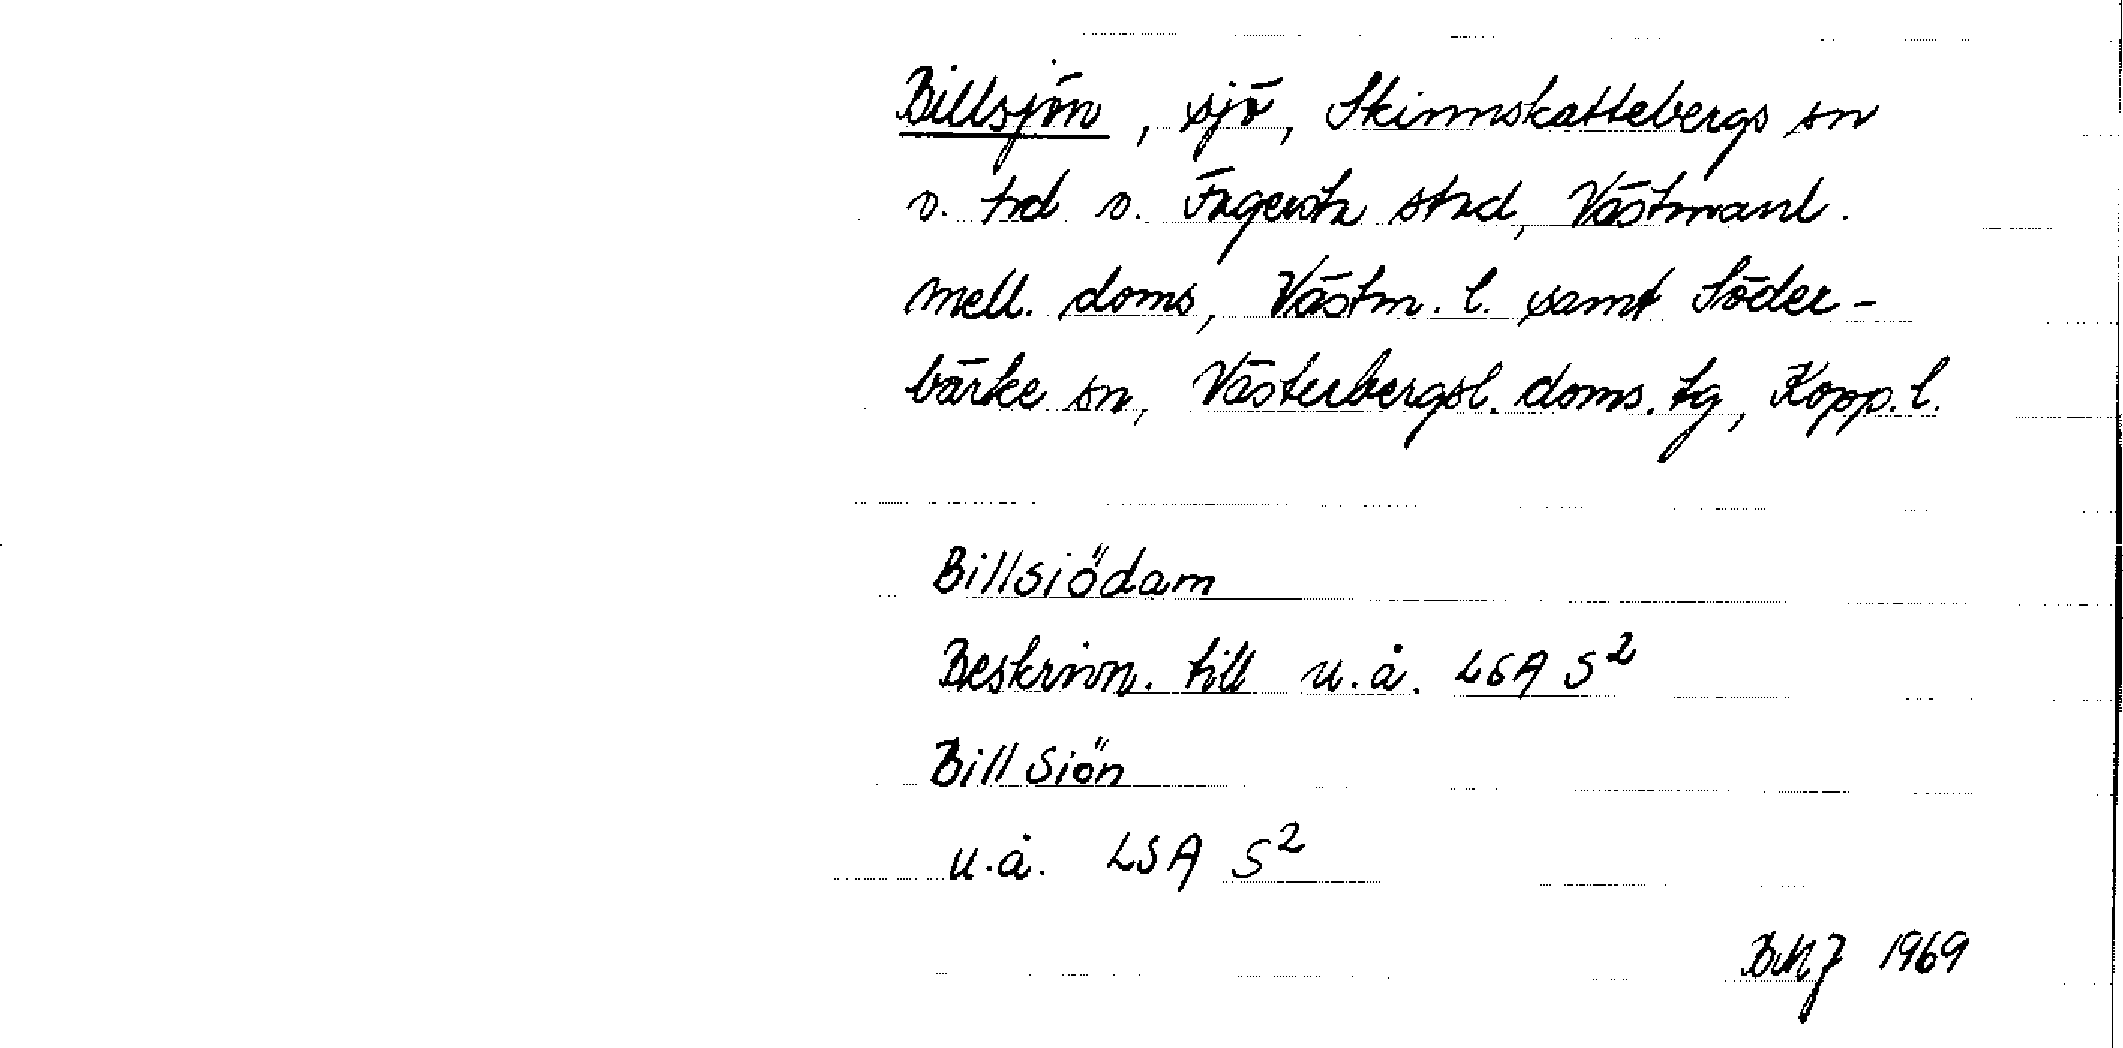 Billsjön, sjö, Skinnskattebergs sn
o. trd o. Fagersta stad, Västmanl.
mell. doms, Västm. l. samt Söder-
bärke sn, Västerbergsl. doms. tg, Kopp. l.
Billsiödam
Beskrivn. till u.å. LSA S²
Bill Siön
u.å. LSA S²
1969